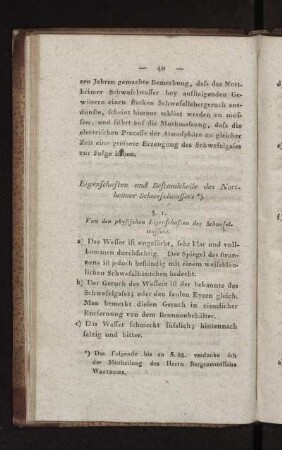 — 40 —
ren Jahren gemachte Bemerkung, daſs das Nort-
heimer Schwefelwasser bey aufſteigenden Ge-
wittern einen ſtarken Schwefellebergeruch aus-
dünſte, ſcheint hieraus erklärt werden zu müſ-
ſen, und führt auf die Muthmaſsung, daſs die
electriſchen Proceſſe der Atmoſphäre zu gleicher
Zeit eine gröſsere Erzeugung des Schwefelgaſes
zur Folge haben.
Eigenſchaften und Beſtandtheile des Nort-
heimer Schwefelwaſſers *).
§. 1.
Von den phyſiſchen Eigenſchaften des Schwefel-
waſſers.
a) Das Waſſer iſt ungefärbt, ſehr klar und voll-
kommen durchſichtig. Der Spiegel des Brun-
nens iſt jedoch beſtändig mit einem weiſsblau-
lichen Schwefelhäutchen bedeckt.
b) Der Geruch des Waſſers iſt der bekannte des
Schwefelgaſes; oder den faulen Eyern gleich.
Man bemerkt dieſen Geruch in ziemlicher
Entfernung von dem Brunnenbehälter.
c) Das Waſſer ſchmeckt ſüſslich; hintennach
ſalzig und bitter.
*) Das Folgende bis zu S. 66. verdanke ich
der Mittheilung des Herrn Bergcommiſſairs
Westrumb.